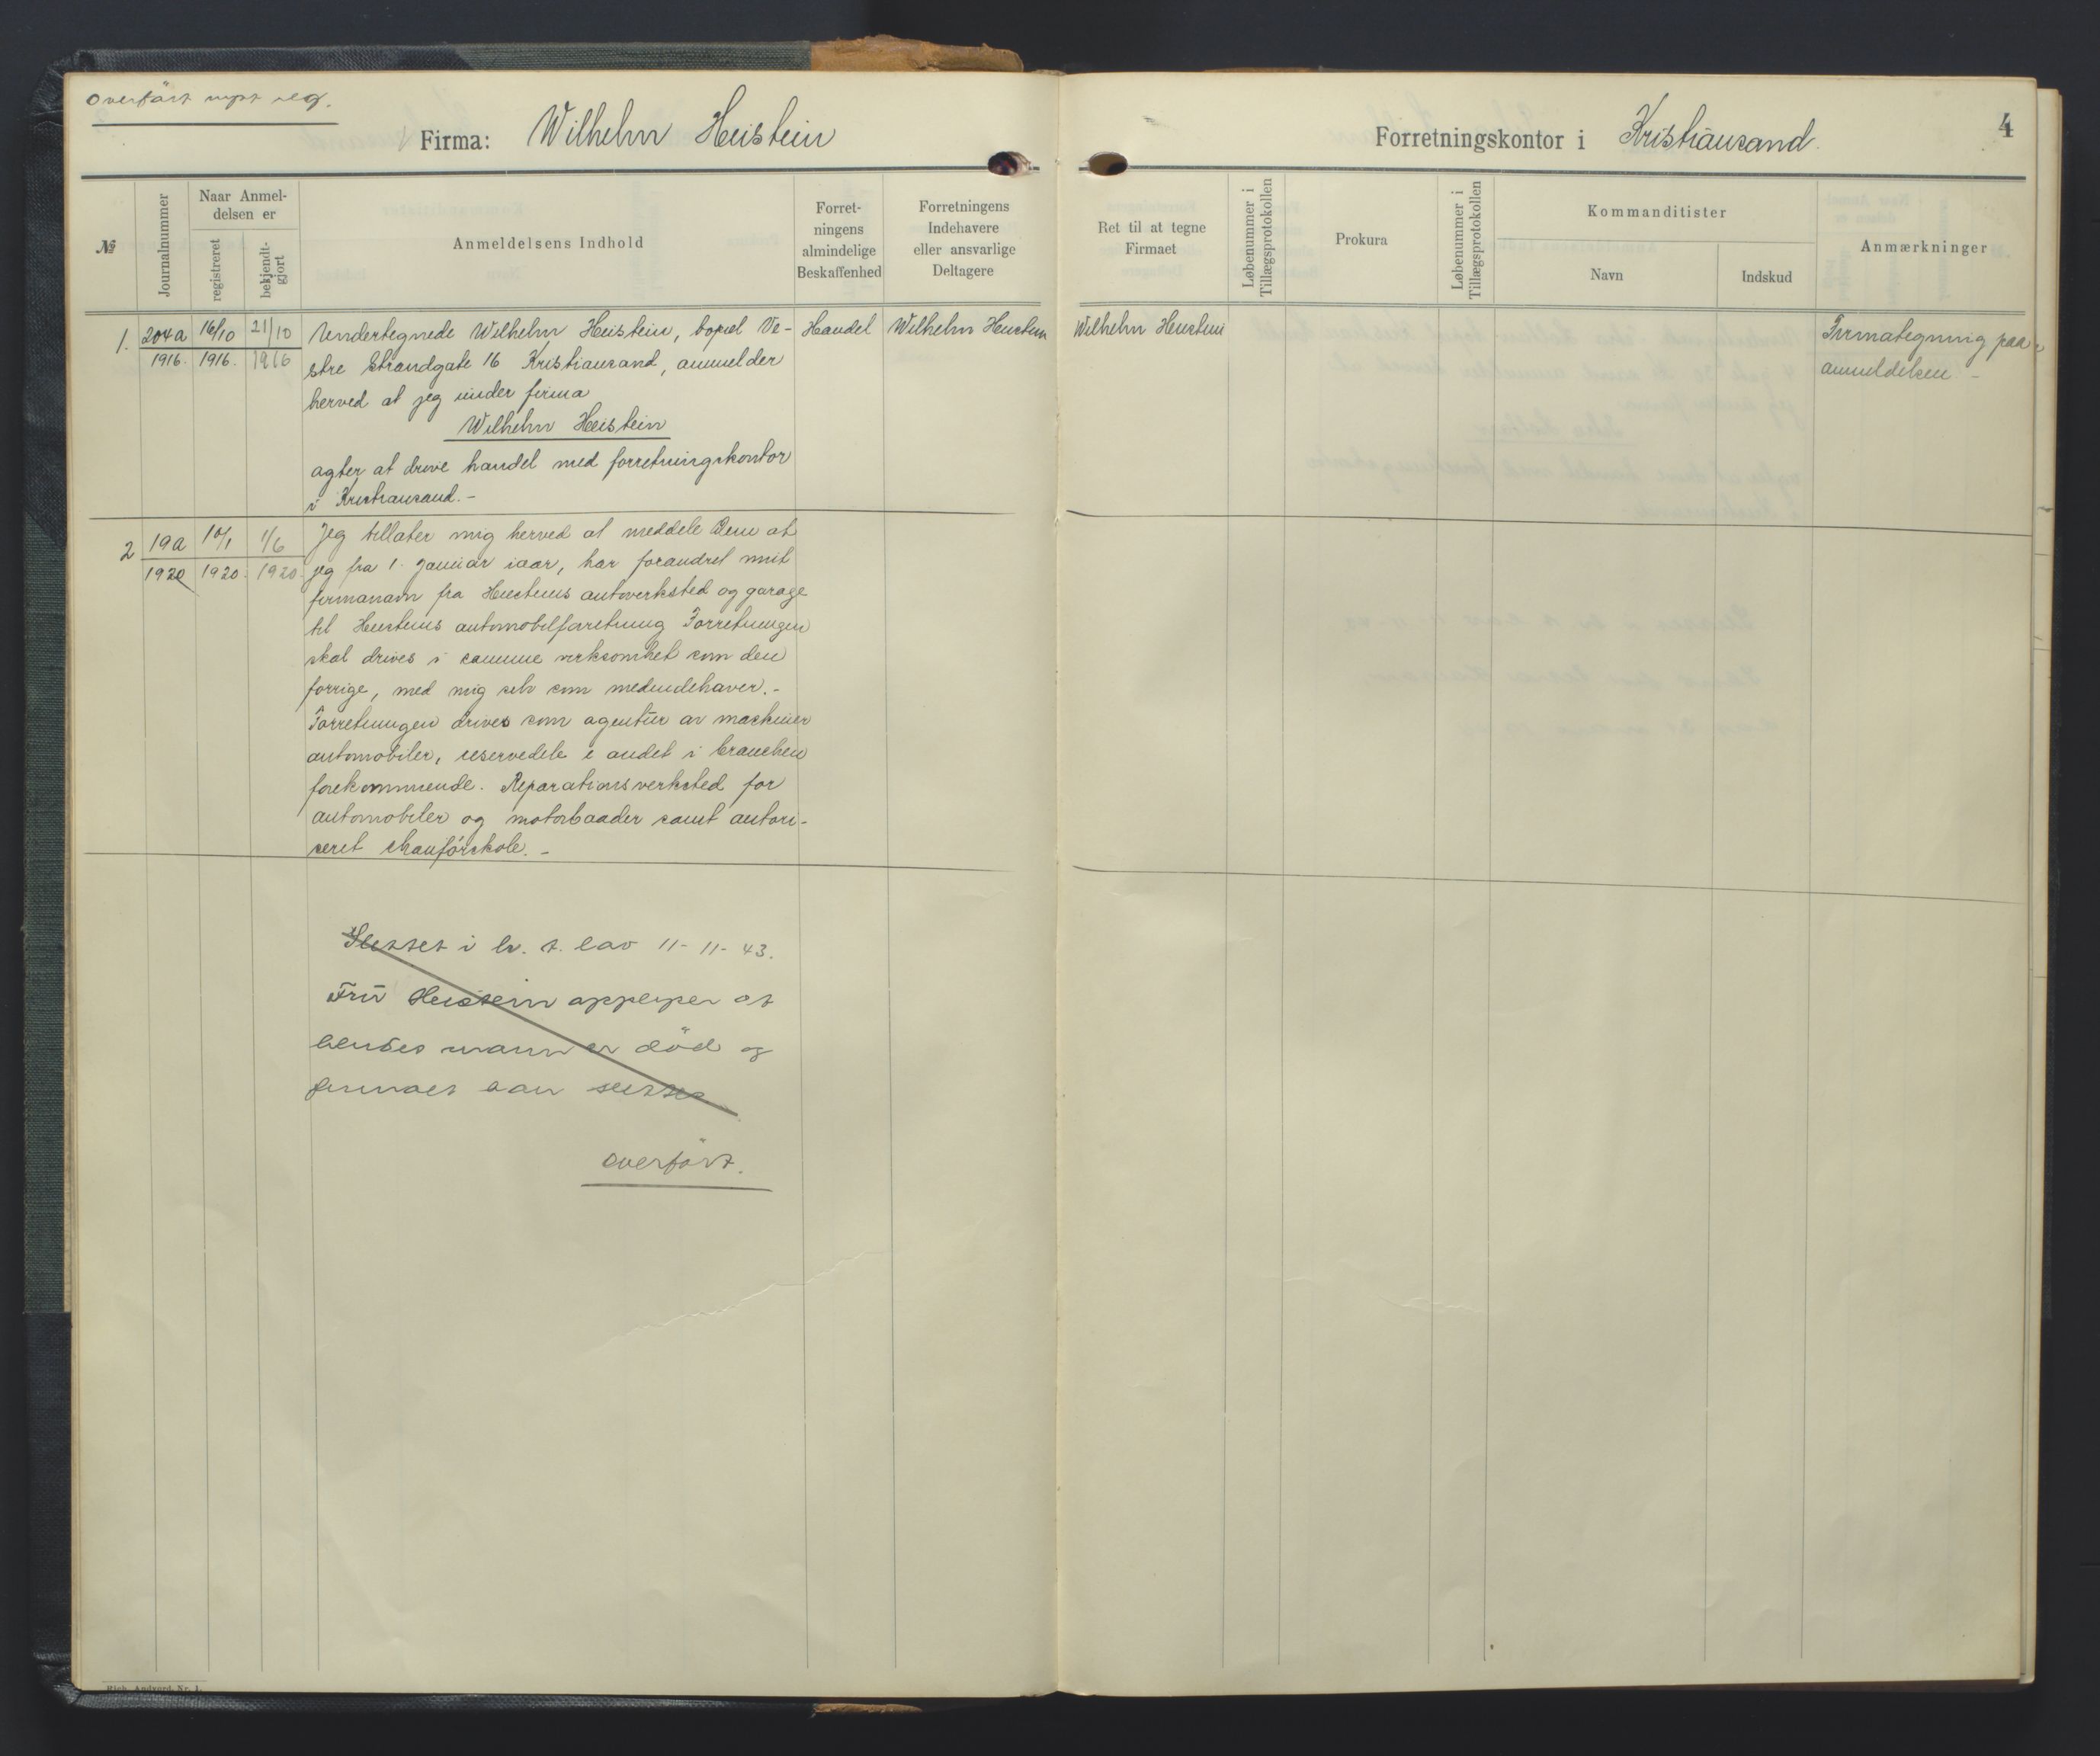 Overført nyt reg.
Firma: Wilhelm Heistein
Forretningskontor i Kristiansand.
4
№
Journalnummer
Naar Anmel-
delsen er
registreret
bekjendt-
gjort
Anmeldelsens Indhold
Forret-
ningens
almindelige
Beskaffenhed
Forretningens
Indehavere
eller ansvarlige
Deltagere
Ret til at tegne
Firmaet
Løbenummer i
Tillægsprotokollen
Prokura
Løbenummer i
Tillægsprotokollen
Kommanditister
Navn
Indskud
Anmærkninger
1.
204a
1916.
16/10
1916.
21/10
1916
Undertegnede Wilhelm Heistein, bopæl Ve-
stre Strandgate 16 Kristiansand, anmelder
herved at jeg under firma
Wilhelm Heistein
agter at drive handel med forretningskontor
i Kristiansand. -
Handel
Wilhelm Heistein
Wilhelm Heistein
Firmategning paa
anmeldelsen -
2
19a
1920
10/1
1920.
1/6
1920.
Jeg tillater mig herved at meddele Dem at
jeg fra 1. Januar iaar, har forandret mit
firmanavn fra Heisteins autoverksted og garage
til Heisteins automobilforretning Forretningen
skal drives i samme virksomhet som den
forrige, med mig selv som medindehaver. -
Forretningen drives som agentur av maskiner
automobiler, reservedele & andet i branchen
forekommende. Reparationsverksted for
automobiler og motorbaader samt autori-
seret chauførskole. -
Slettet i h. t. lov 11-11-43.
Fru Heistein opplyser at
hendes mann er død og
firmaet kan slettes
Overført.
Rich. Andvord. Nr. 1.